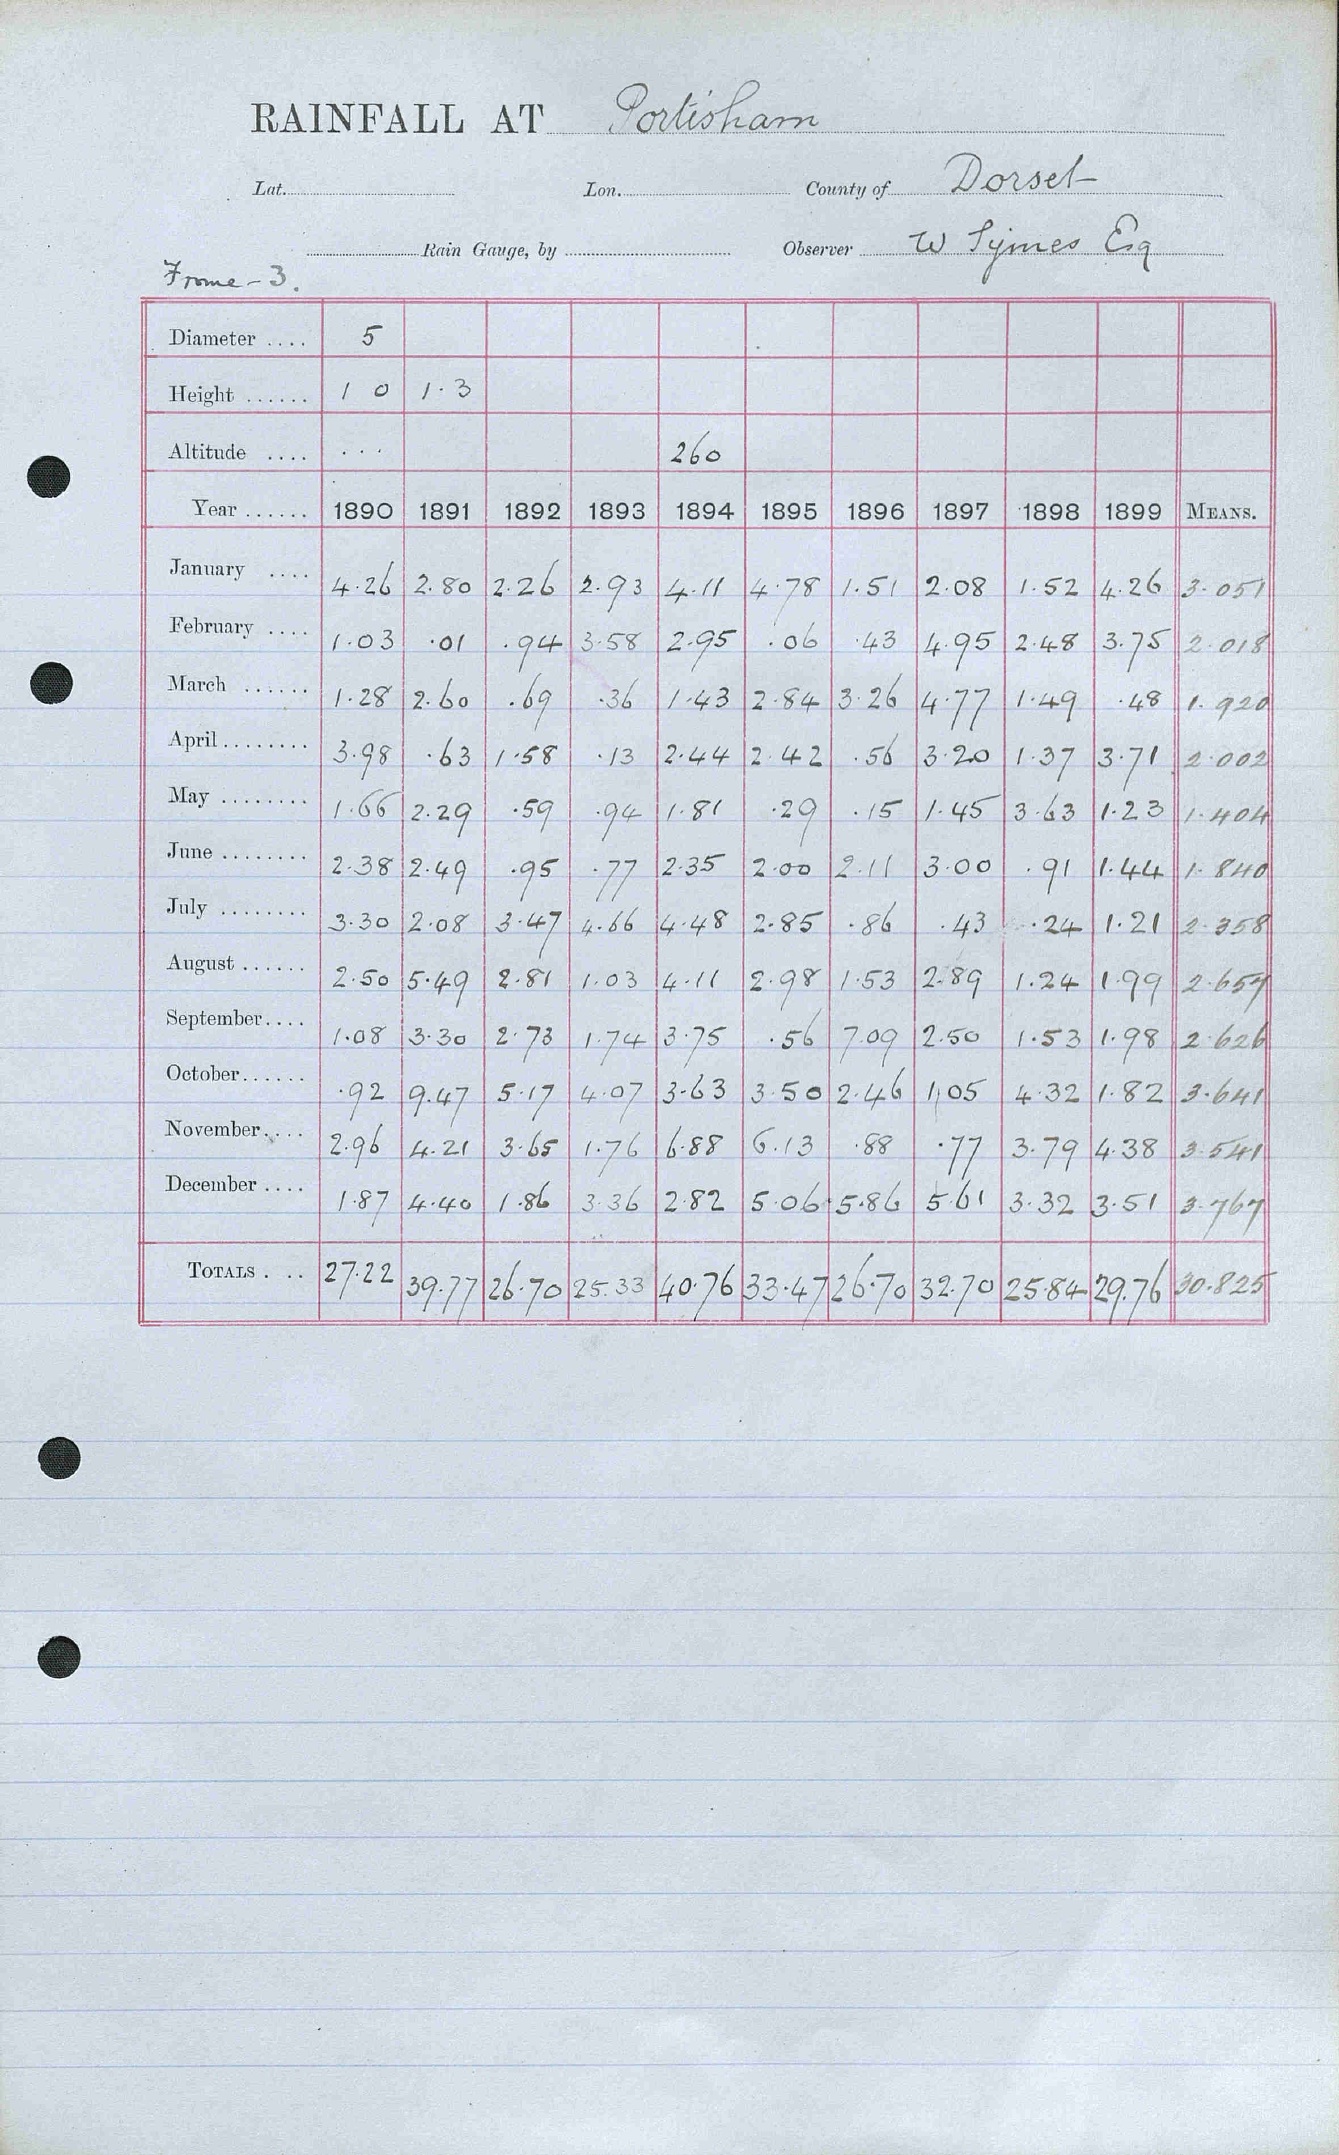 RAINFALL AT Portisham
Lat. Lon. County of Dorset
Rain Gauge, by Observer W Symes Esq
Frome - 3.
Diameter .... 5
Height ...... 1 0 1.3
Altitude .... ... 260
Year ...... 1890 1891 1892 1893 1894 1895 1896 1897 1898 1899 MEANS.
January .... 4.26 2.80 2.26 2.93 4.11 4.78 1.51 2.08 1.52 4.26 3.051
February .... 1.03 .01 .94 3.58 2.95 .06 .43 4.95 2.48 3.75 2.018
March ...... 1.28 2.60 .69 .36 1.43 2.84 3.26 4.77 1.49 .48 1.920
April ........ 3.98 .63 1.58 .13 2.44 2.42 .56 3.20 1.37 3.71 2.002
May ........ 1.66 2.29 .59 .94 1.81 .29 .15 1.45 3.63 1.23 1.404
June ........ 2.38 2.49 .95 .77 2.35 2.00 2.11 3.00 .91 1.44 1.840
July ........ 3.30 2.08 3.47 4.66 4.48 2.85 .86 .43 .24 1.21 2.358
August ...... 2.50 5.49 2.81 1.03 4.11 2.98 1.53 2.89 1.24 1.99 2.657
September .... 1.08 3.30 2.73 1.74 3.75 .56 7.09 2.50 1.53 1.98 2.626
October ...... .92 9.47 5.17 4.07 3.63 3.50 2.46 1.05 4.32 1.82 3.641
November .... 2.96 4.21 3.65 1.76 6.88 6.13 .88 .77 3.79 4.38 3.541
December .... 1.87 4.40 1.86 3.36 2.82 5.06 5.86 5.61 3.32 3.51 3.767
TOTALS . .. 27.22 39.77 26.70 25.33 40.76 33.47 26.70 32.70 25.84 29.76 30.825